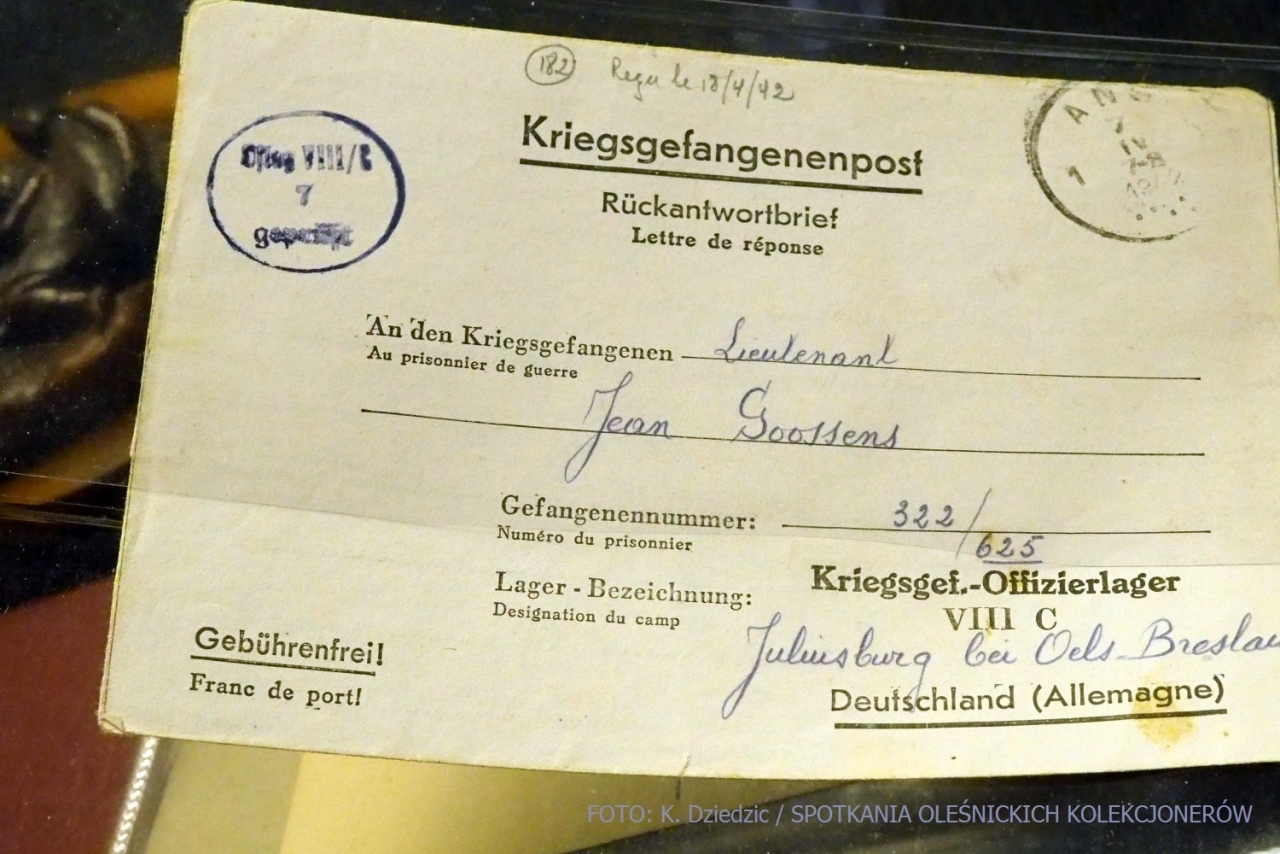 182 Reçu le 18/4/42
Kriegsgefangenenpost
Rückantwortbrief
Lettre de réponse
Oflag VIII/C
7
geprüft
1
An den Kriegsgefangenen Lieutenant
Au prisonnier de guerre
Jean Goossens
Gefangenennummer: 322/
Numéro du prisonnier 625
Lager-Bezeichnung: Kriegsgef.-Offizierlager
Designation du camp VIII C
Juliusburg bei Oels-Breslau
Deutschland (Allemagne)
Gebührenfrei!
Franc de port!
FOTO: K. Dziedzic / SPOTKANIA OLEŚNICKICH KOLEKCJONERÓW